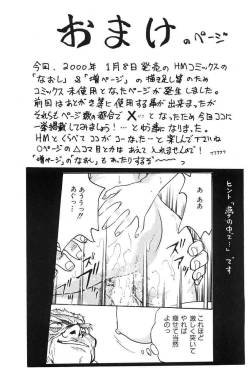 おまけのページ
今回、2000年 1月8日発売の HMコミックスの
「なおし」&「増ページ」の描き足し等のため
コミックス未使用となったページが発生しました。
前回はあとがき等に使用する事が出来ましたが
それらもページ数の都合で ×… となったため今回ココに
一挙掲載してみましょう! …とゆう事になりました。
HMとくらべて ココが コーなった… と楽しんで下さいね
「増ページ」の「なおし」も
ヒント「夢の中で…」です
あ ああ
あううっ!!
あぐっ…
これほど
激しく突いて
やれば
痩せて当然
よのっ